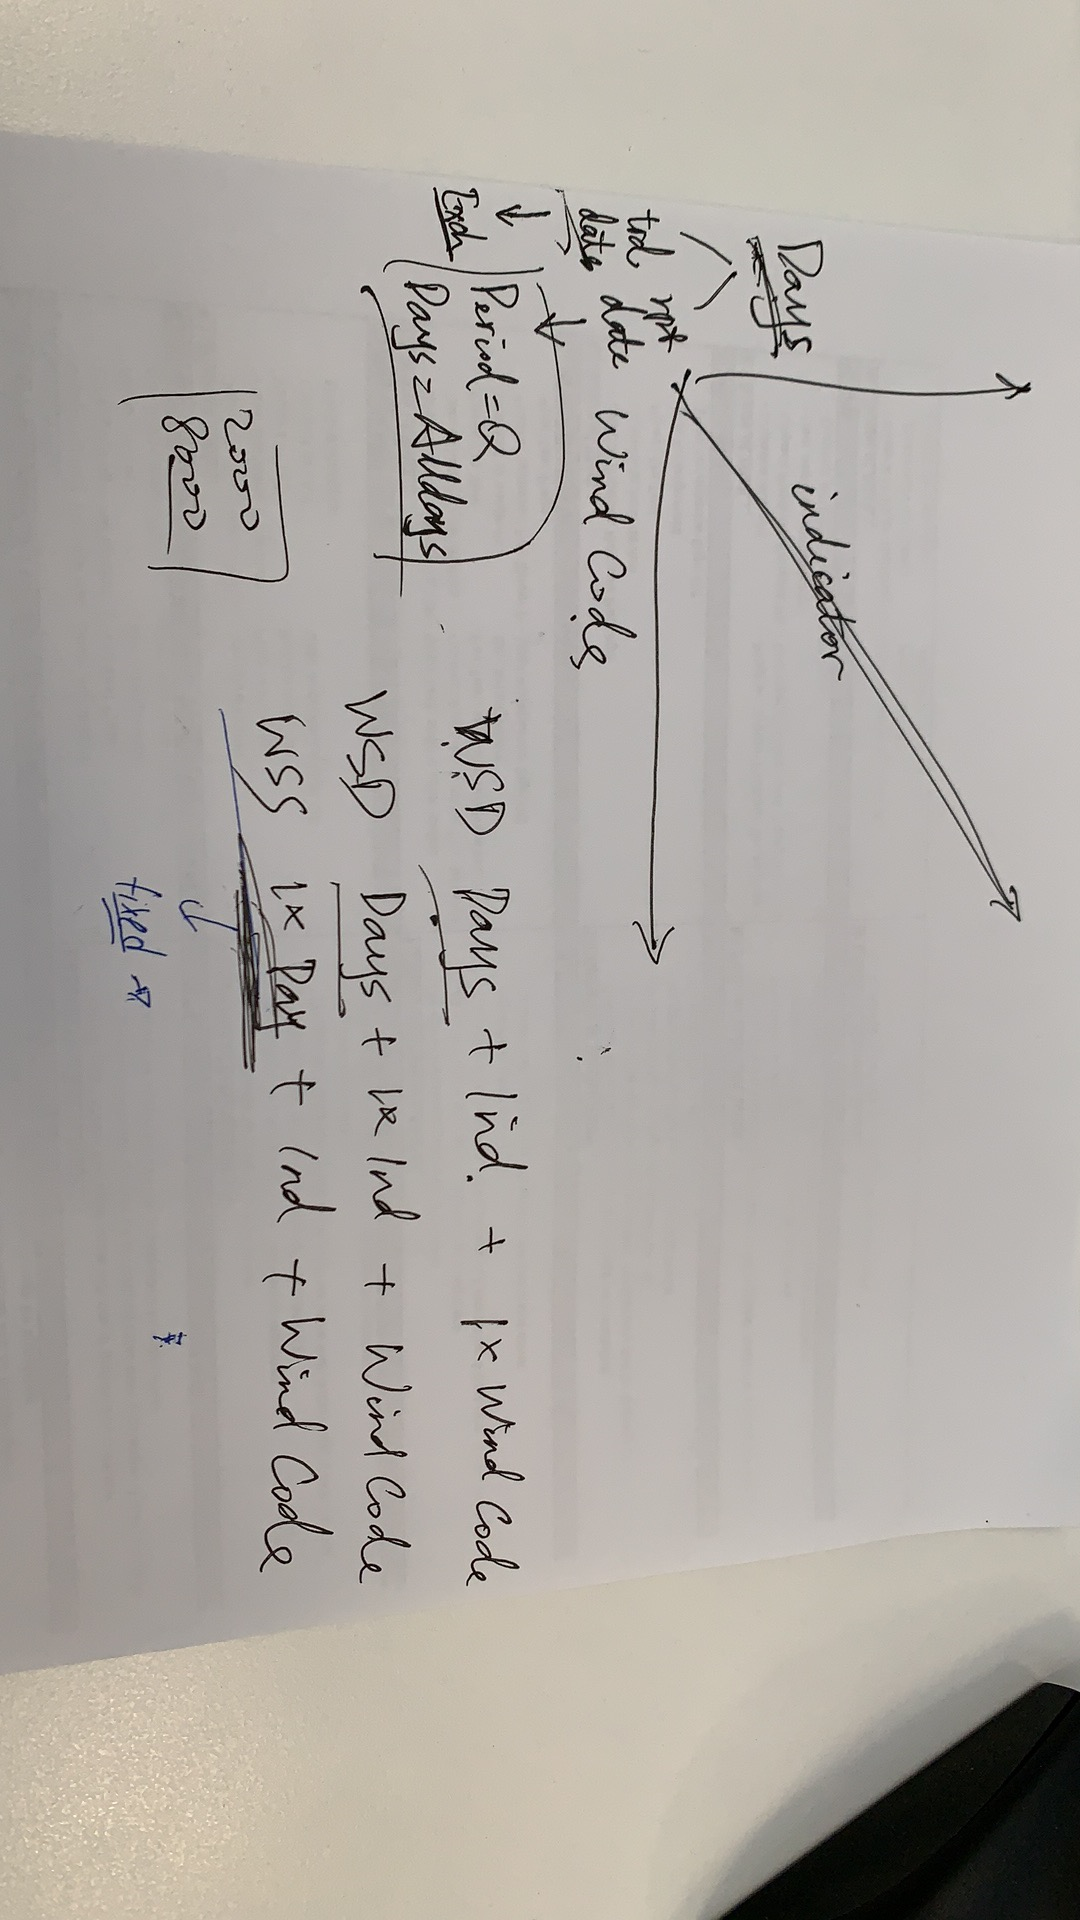 Days
indicator
trd date
rpt date
Wind Codes
Period = Q
Days = Alldays
2000
8000
WSD Days + Ind. + 1x Wind Code
WSD Days + 1x Ind + Wind Code
WSS 1x Day + Ind + Wind Code
fixed